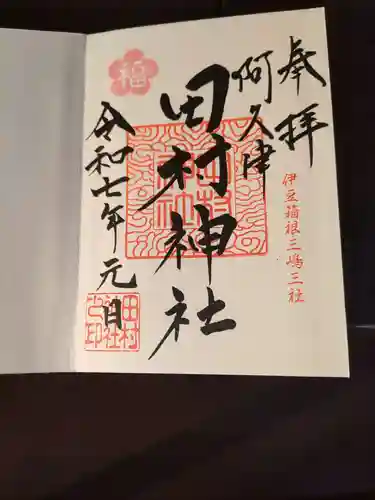 奉拝
伊豆箱根三嶋三社
阿久津
田村神社
福
令和七年元日
田村
神社
之印